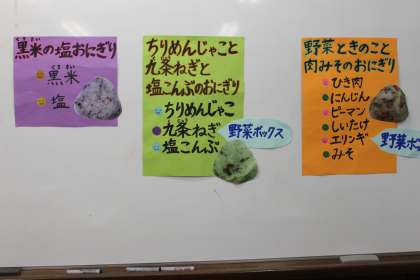 黒米の塩おにぎり
黒米
塩
ちりめんじゃこと
九条ねぎと
塩こんぶのおにぎり
ちりめんじゃこ
九条ねぎ
塩こんぶ
野菜ボックス
野菜ときのこと
肉みそのおにぎり
ひき肉
にんじん
ピーマン
しいたけ
エリンギ
みそ
野菜ボ